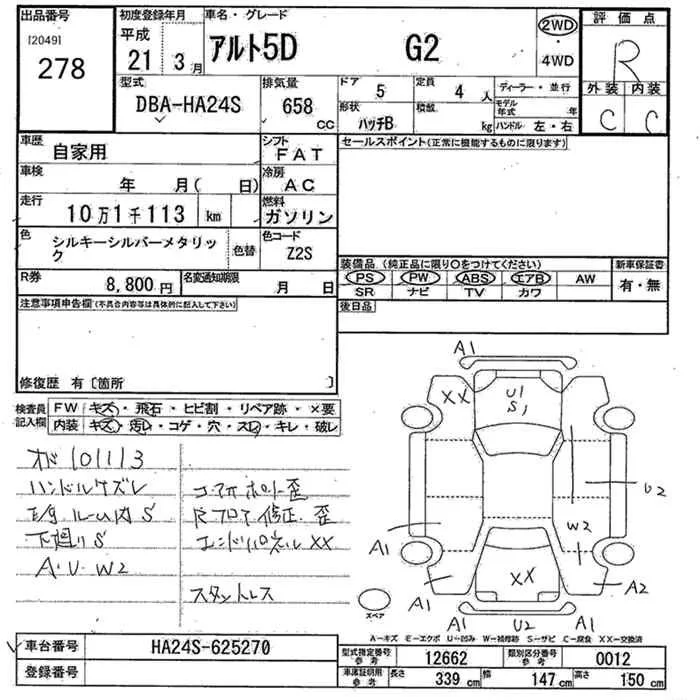 出品番号
[2049]
278
初度登録年月
平成
21 3月
車名・グレード
アルト5D G2
2WD
・
4WD
評価点
R
外装 内装
C C
型式
DBA-HA24S
排気量
658 CC
ドア 5
定員 4 人
形状 ハッチB
積載 kg
ディーラー・並行
モデル年式 年
ハンドル 左・右
車歴
自家用
シフト
FAT
セールスポイント(正常に機能するものに限ります)
車検
年 月( 日)
冷房
AC
走行
10万1千113 km
燃料
ガソリン
色
シルキーシルバーメタリック
色替
色コード
Z2S
装備品 (純正品に限り○をつけてください)
PS PW ABS エアB AW
SR ナビ TV カワ
新車保証書
有・無
R券
8,800円
名変通知期限
月 日
後日品
注意事項申告欄(不具合内容等は具体的に記入して下さい)
修復歴 有〔箇所 〕
検査員記入欄
FW キズ・飛石・ヒビ割・リペア跡・×要
内装 キズ・汚レ・コゲ・穴・スレ・キレ・破レ
オド101113
ハンドルケズレ
ルーム内S
下廻りS
A・U・W2
コーアサポート歪
Rフロア修正、歪
エンドパネルXX
スタットレス
A1
XX
U1
S1
U2
W2
A1
A1
XX
A2
A1 U2 A1
スペア
A-キズ E-エクボ U-凹み W-補修跡 S-サビ C-腐食 XX-交換済
車台番号
HA24S-625270
登録番号
型式指定番号 参考
12662
類別区分番号 参考
0012
車庫証明用 参考
長さ 339 cm
幅 147 cm
高さ 150 cm